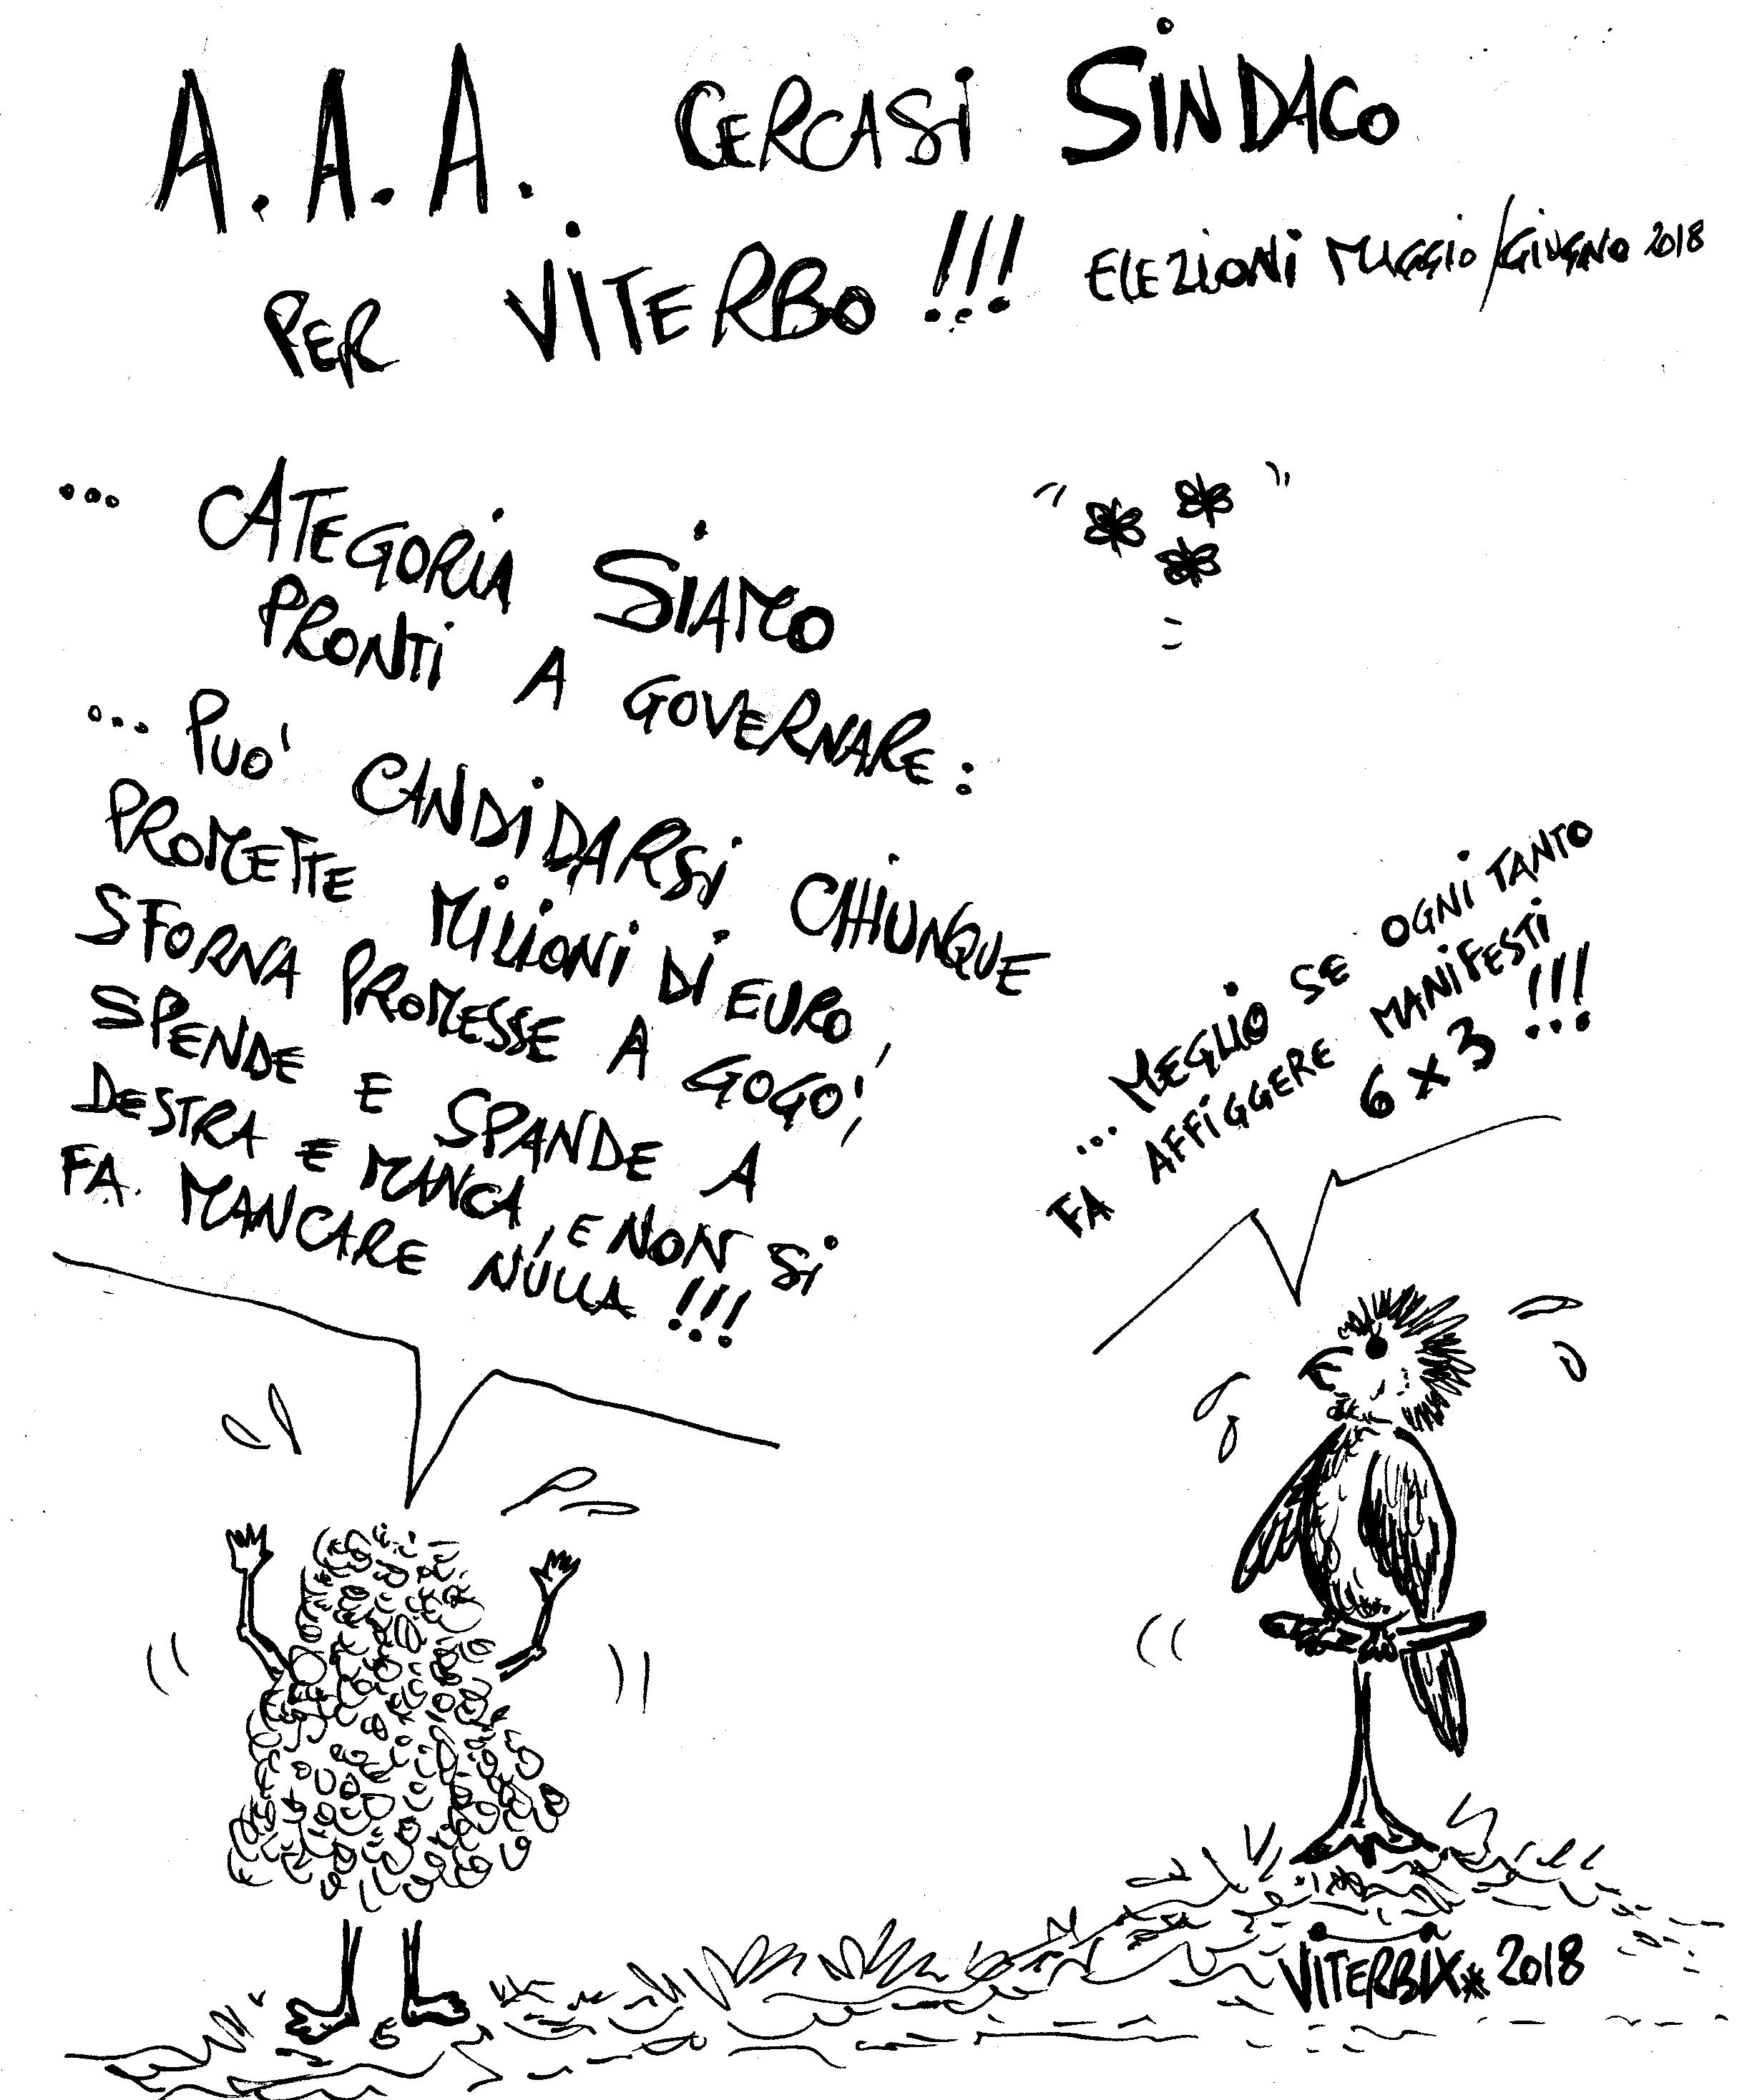 A.A.A. CERCASI SINDACO
PER VITERBO!!! ELEZIONI MAGGIO/GIUGNO 2018
... CATEGORIA SIAMO
PRONTI A GOVERNARE:
... PUO' CANDIDARSI CHIUNQUE
PROMETTE MILIONI DI EURO,
SFORNA PROMESSE A GOGO',
SPENDE E SPANDE A
DESTRA E MANCA, E NON SI
FA MANCARE NULLA!!!
... MEGLIO SE OGNI TANTO
FA AFFIGGERE MANIFESTI
6 x 3 !!!
VITERBIX* 2018